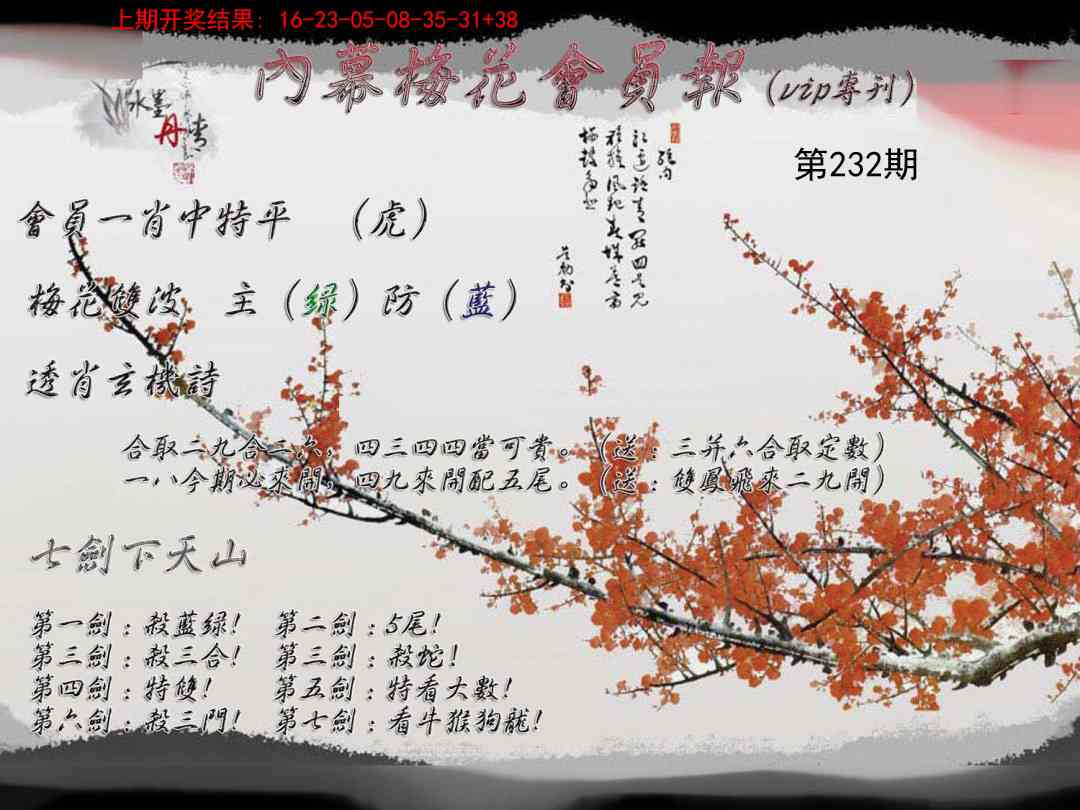 上期开奖结果: 16-23-05-08-35-31+38
內幕梅花會員報(vip專刊)
水墨
丹青
第232期
會員一肖中特平 （虎）
梅花雙波 主（緑）防（藍）
透肖玄機詩
合取二九合二六，四三四四當可貴。（送：三并六合取定數）
一八今期必來開，四九來開配五尾。（送：雙鳳飛來二九開）
七劍下天山
第一劍：殺藍緑! 第二劍：5尾!
第三劍：殺三合! 第三劍：殺蛇!
第四劍：特雙! 第五劍：特看大數!
第六劍：殺三門! 第七劍：看牛猴狗龍!